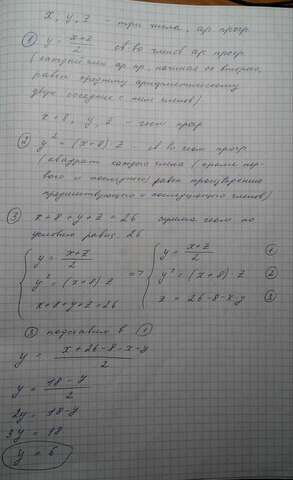 x, y, z – три числа, ар. прогр.
① y = x+z/2 св-во членов ар. прогр.
(каждый член ар. пр., начиная со второго,
равен среднему арифметическому
двух соседних с ним членов)
x+8, y, z – геом. прогр
② y² = (x+8) z св-во геом. прогр
(квадрат каждого члена (кроме пер-
вого и последнего) равен произведению
предшествующего и последующего членов)
③ x+8+y+z=26 сумма геом по
условию равна 26
{ y = x+z/2 => { y = x+z/2 ①
y² = (x+8) z y² = (x+8)·z ②
x+8+y+z=26 z = 26-8-x-y ③
③ подставим в ①
y = x+26-8-x-y/2
y = 18-y/2
2y = 18-y
3y = 18
y = 6